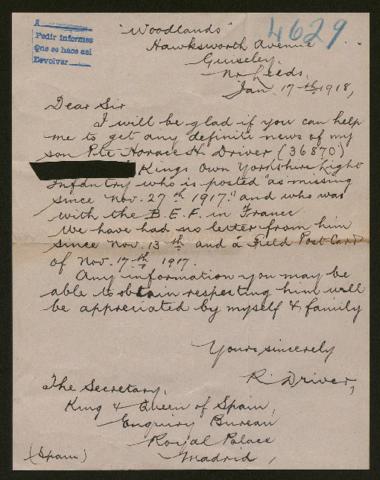 A
Pedir informes
Que se hace así
Devolver
4629
"Woodlands"
Hawksworth Avenue
Guiseley,
Nr Leeds,
Jan 17th 1918,
Dear Sir
I will be glad if you can help
me to get any definite news of my
son Pte Horace H. Driver (36870)
Kings Own Yorkshire Light
Infantry who is posted "as missing
since Nov. 27th 1917" and who was
with the B.E.F. in France
We have had no letter from him
since Nov. 13th and a Field Post Card
of Nov. 17th 1917.
Any information you may be
able to obtain respecting him will
be appreciated by myself & family
Yours sincerely
R. Driver,
The Secretary,
King & Queen of Spain,
Enquiry Bureau
Royal Palace
Madrid,
(Spain)